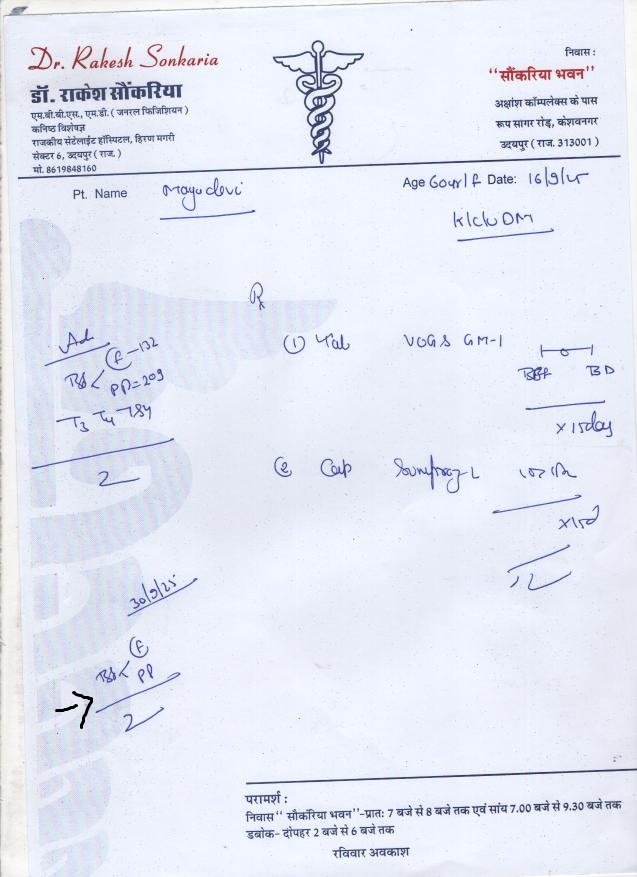 Dr. Rakesh Sonkaria
डॉ. राकेश सौंकरिया
एम.बी.बी.एस., एम.डी. ( जनरल फिजिशियन )
कनिष्ठ विशेषज्ञ
राजकीय सेटेलाईट हॉस्पिटल, हिरण मगरी
सेक्टर 6, उदयपुर ( राज. )
मो. 8619848160
निवास :
"सौंकरिया भवन"
अक्षांश कॉम्पलेक्स के पास
रूप सागर रोड़, केशवनगर
उदयपुर ( राज. 313001 )
Pt. Name Mayadevi
Age 60yr/f Date: 16/9/25
K/c/o DM
Rx
Ad
BS < F - 132
PP = 209
T3 T4 TSH
(1) Tab VOGS GM-1
BBF BD
x 15day
(2) Cap
x15d
30/9/25
BS < F
PP
परामर्श :
निवास" सौकरिया भवन"-प्रातः 7 बजे से 8 बजे तक एवं सांय 7.00 बजे से 9.30 बजे तक
डबोक- दोपहर 2 बजे से 6 बजे तक
रविवार अवकाश